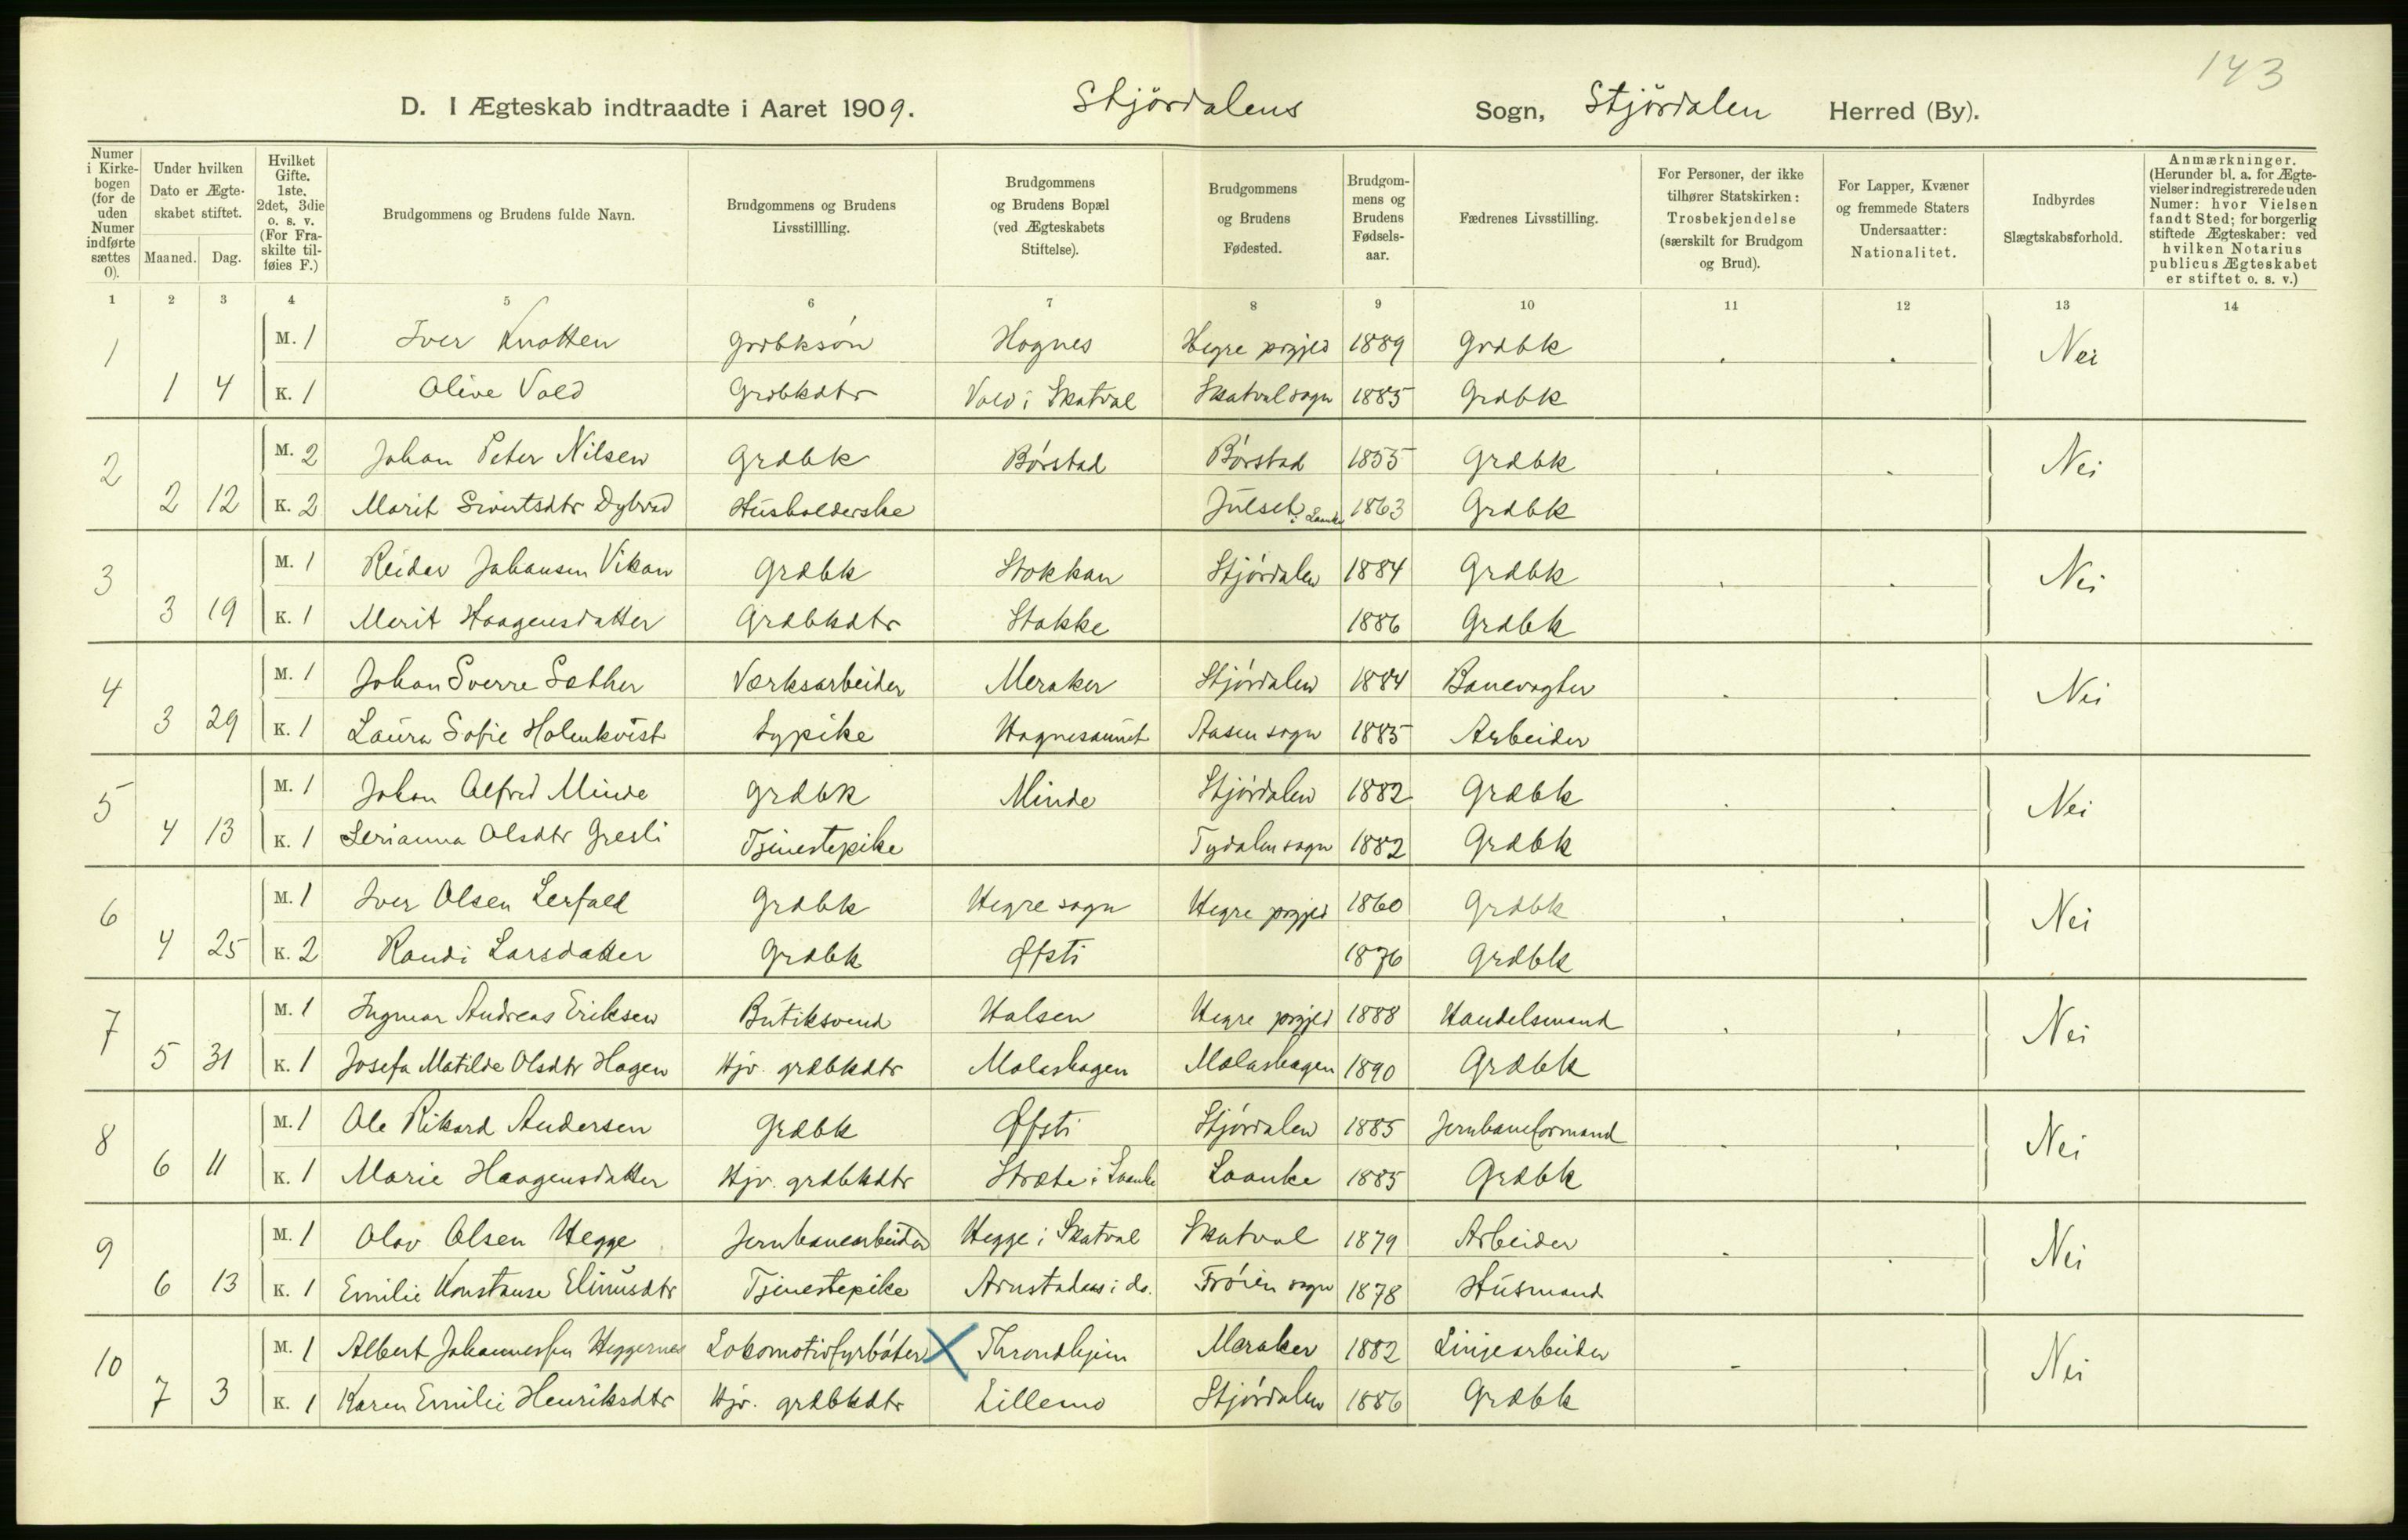 143
D. I Ægteskab indtraadte i Aaret 1909. Stjördalens Sogn, Stjördalen Herred (By).
Numer i Kirkebogen (for de uden Numer indførte sættes 0).
Under hvilken Dato er Ægteskabet stiftet.
Maaned. Dag.
Hvilket Gifte. 1ste, 2det, 3die o. s. v. (For Fraskilte tilføies F.)
Brudgommens og Brudens fulde Navn.
Brudgommens og Brudens Livsstillling.
Brudgommens og Brudens Bopæl (ved Ægteskabets Stiftelse).
Brudgommens og Brudens Fødested.
Brudgommens og Brudens Fødselsaar.
Fædrenes Livsstilling.
For Personer, der ikke tilhører Statskirken: Trosbekjendelse (særskilt for Brudgom og Brud).
For Lapper, Kvæner og fremmede Staters Undersaatter: Nationalitet.
Indbyrdes Slægtskabsforhold.
Anmærkninger. (Herunder bl. a. for Ægtevielser indregistrerede uden Numer: hvor Vielsen fandt Sted; for borgerlig stiftede Ægteskaber: ved hvilken Notarius publicus Ægteskabet er stiftet o. s. v.)
1 2 3 4 5 6 7 8 9 10 11 12 13 14
1 M. 1 Iver Knotten Grdbksön Hognes Hegre prgjed 1889 Grdbk Nei
1 4 K. 1 Olive Vold Grdbkdtr Vold i Skatval Skatval sogn 1885 Grdbk
2 M. 2 Johan Peter Nilsen Grdbk Börstad Börstad 1855 Grdbk Nei
2 12 K. 2 Marit Sivertsdtr Dybvad Husholderske Julset i Laanke 1863 Grdbk
3 M. 1 Reidar Johansen Vikan Grdbk Stokkan Stjördalen 1884 Grdbk Nei
3 19 K. 1 Merit Haagensdatter Grdbkdtr Stokke 1886 Grdbk
4 M. 1 Johan Sverre Sæther Værksarbeider Meraker Stjördalen 1884 Banevogter Nei
3 29 K. 1 Laura Sofie Holmkvist Sypike Hognesaunet Aasen sogn 1885 Arbeider
5 M. 1 Johan Alfred Minde grdbk Minde Stjördalen 1882 Grdbk Nei
4 13 K. 1 Lerianna Olsdtr Gresli Tjenestepike Tydalen sogn 1882 Grdbk
6 M. 1 Iver Olsen Lerfald Grdbk Hegre sogn Hegre prgjed 1860 Grdbk Nei
4 25 K. 2 Randi Larsdatter Grdbk Öfsti 1876 Grdbk
7 M. 1 Ingmar Andreas Eriksen Butiksvend Halsen Hegre prgjed 1888 Handelsmand Nei
5 31 K. 1 Josefa Matilde Olsdtr Hagen Hjv. grdbkdtr Molashagen Molashagen 1890 Grdbk
8 M. 1 Ole Rikard Andersen Grdbk Öfsti Stjördalen 1885 Jernbaneformand Nei
6 11 K. 1 Marie Haagensdatter Hjv. grdbkdtr Stræte i Laanke Laanke 1885 Grdbk
9 M. 1 Olav Olsen Hegge Jernbanearbeider Hegge i Skatval Skatval 1879 Arbeider Nei
6 13 K. 1 Emilie Konstanse Elinusdtr Tjenestepike Arnstadaas i do. Fröien sogn 1878 Husmand
10 M. 1 Albert Johannessen Heggernes Lokomotivfyrböter X Throndhjem Meraker 1882 Linjearbeider Nei
7 3 K. 1 Karen Emilie Henriksdtr Hjv. grdbkdtr Lillemo Stjördalen 1886 Grdbk